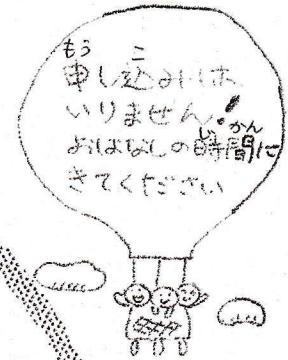 申し込みは
いりません!
おはなしの時間に
きてください